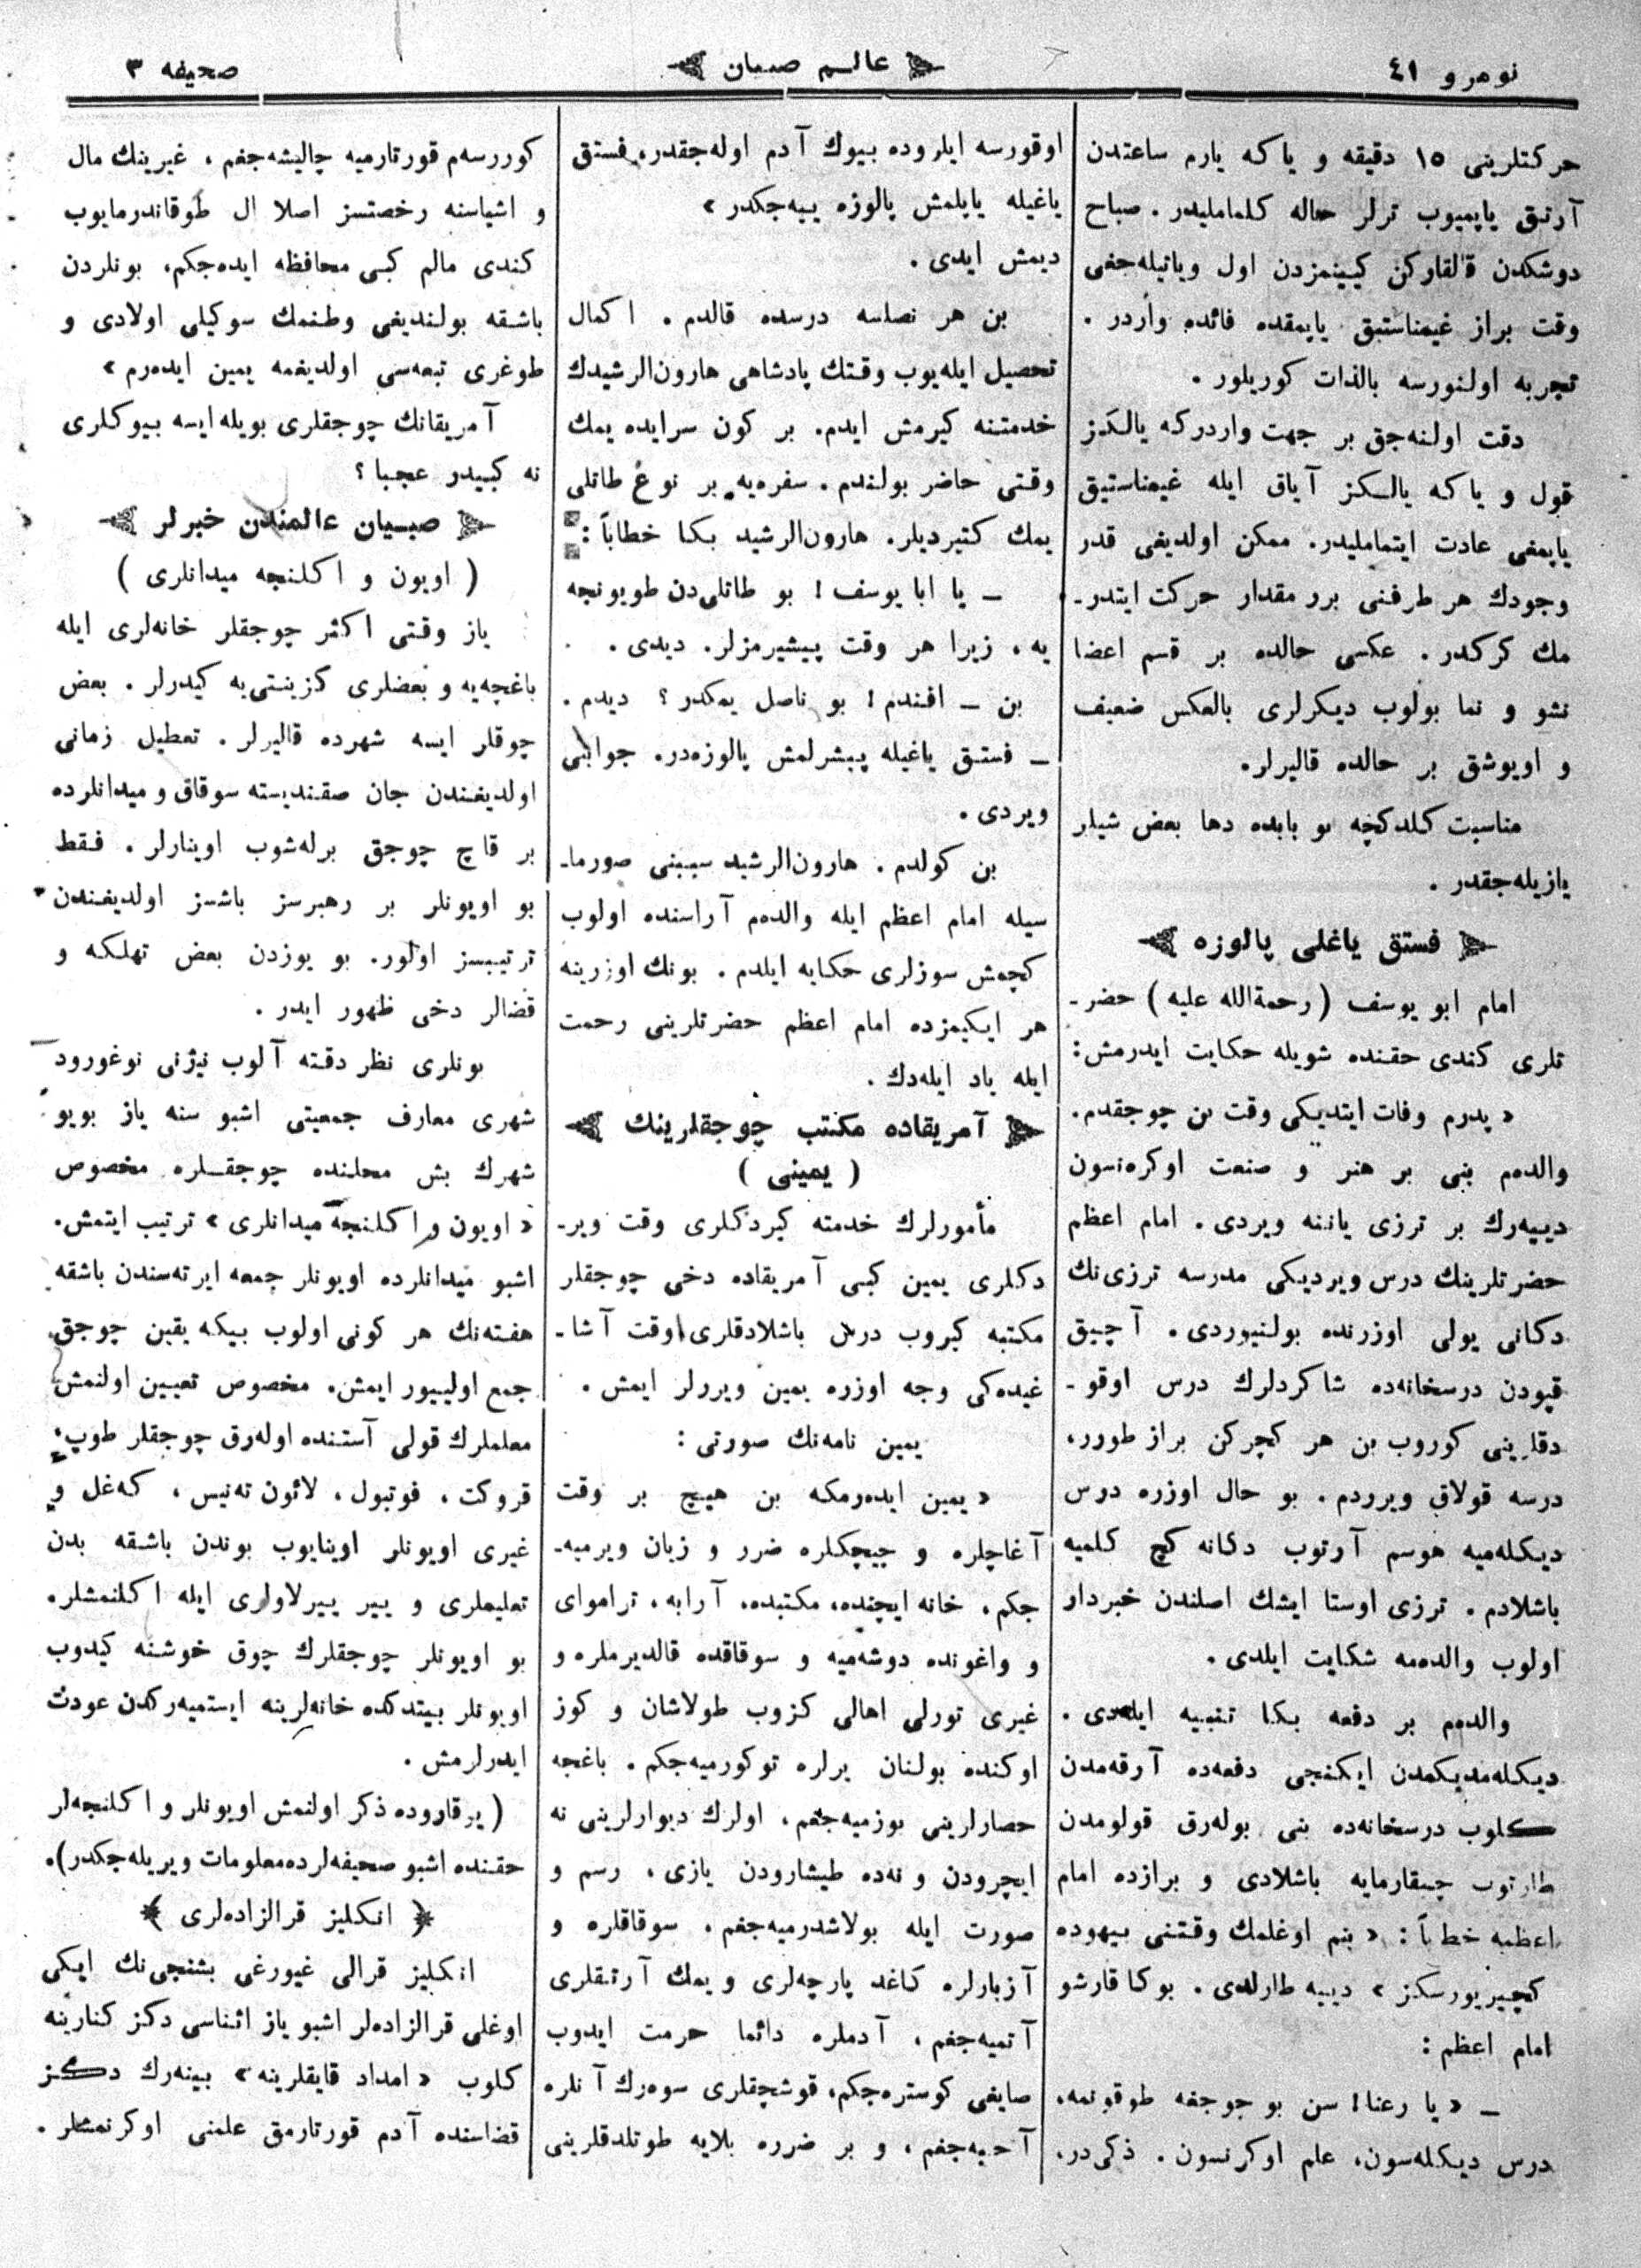 نومرو ٤١
عالم صبيان
صحيفه ٣
حركتلرينى ١٥ دقيقه و ياكه يارم ساعتدن
آرتق ياپميوب ترلر حاله كلماملیدر . صباح
دوشكدن قالقاركن كيينمزدن اول وياتيله‌جغى
وقت براز غيمناستيق ياپمقده فائده واردر .
تجربه اولنورسه بالذات كوريلور .
دقت اولنه‌جق بر جهت واردركه يالكز
قول و ياكه يالكز آياق ايله غيمناستيق
ياپمغى عادت ايتمامليدر. ممكن اولديغى قدر
وجودك هر طرفنى برر مقدار حركت ايتدر-
مك كركدر . عكسى حالده بر قسم اعضا
نشو و نما بولوب ديكرلرى بالعكس ضعيف
و اويوشق بر حالده قاليرلر.
مناسبت كلدكچه بو بابده دها بعض شيلر
يازيله‌جقدر .
فستق ياغلى پالوزه
امام ابو يوسف ( رحمةالله عليه ) حضر-
تلرى كندى حقنده شويله حكايت ايدرمش:
« پدرم وفات ايتديكى وقت بن چوجقدم.
والده‌م بنى بر هنر و صنعت اوكره‌نسون
دييه‌رك بر ترزى ياننه ويردى . امام اعظم
حضرتلرينك درس ويرديكى مدرسه ترزى‌نك
دكانى يولى اوزرنده بولنيوردى . آچيق
قپودن درسخانه‌ده شاكردلرك درس اوقو-
دقلرينى كوروب بن هر كچركن براز طورر،
درسه قولاق ويرردم . بو حال اوزره درس
ديكله‌ميه هوسم آرتوب دكانه كچ كلميه
باشلادم . ترزى اوستا ايشك اصلندن خبردار
اولوب والده‌مه شكايت ايلدى .
والده‌م بر دفعه بكا تنبيه ايلدى .
ديكله‌مديكمدن ايكنجى دفعه‌ده آرقه‌مدن
كلوب درسخانه‌ده بنى بوله‌رق قولومدن
طارتوب چيقارمايه باشلادى و برازده امام
اعظمه خطاباً : « بنم اوغلمك وقتنى بيهوده
كچيريورسكز » دييه طارلدى . بوكا قارشو
امام اعظم :
ـ « يا رعنا! سن بو چوجغه طوقونمه،
درس ديكله‌سون، علم اوكرنسون . ذكى‌در،
اوقورسه ايلروده بيوك آدم اوله‌جقدر، فستق
ياغيله ياپلمش پالوزه ييه‌جكدر »
ديمش ايدى .
بن هر نصلسه درسده قالدم . اكمال
تحصيل ايله‌يوب وقتك پادشاهى هارون‌الرشيدك
خدمتنه كيرمش ايدم. بر كون سرايده يمك
وقتى حاضر بولندم . سفره‌يه بر نوع طاتلى
يمك كتيرديلر. هارون‌الرشيد بكا خطاباً :
ـ يا ابا يوسف ! بو طاتلى‌دن طويونجه
يه ، زيرا هر وقت پيشيرمزلر. ديدى .
بن ـ افندم ! بو ناصل يمكدر ؟ ديدم .
ـ فستق ياغيله پيشرلمش پالوزه‌در. جوابنى
ويردى .
بن كولدم . هارون‌الرشيد سببنى صورما-
سيله امام اعظم ايله والده‌م آراسنده اولوب
كچمش سوزلرى حكايه ايلدم . بونك اوزرينه
هر ايكيمزده امام اعظم حضرتلرينى رحمت
ايله ياد ايله‌دك .
آمريقاده مكتب چوجقلرينك
( يمينى )
مأمورلرك خدمته كيردكلرى وقت وير-
دكلرى يمين كبى آمريقاده دخى چوجقلر
مكتبه كيروب درس باشلادقلرى وقت آشا-
غيده‌كى وجه اوزره يمين ويررلر ايمش .
يمين نامه‌نك صورتى :
« يمين ايده‌رمكه بن هيچ بر وقت
آغاچلره و چيچكلره ضرر و زيان ويرميه-
جكم، خانه ايچنده، مكتبده، آرابه، تراموای
و واغونده دوشه‌ميه و سوقاقده قالديرملره و
غيرى تورلى اهالى كزوب طولاشان و كوز
اوكنده بولنان يرلره توكورميه‌جكم . باغچه
حصارلرينى بوزميه‌جغم ، اولرك ديوارلرينى نه
ايچرودن و نه‌ده طيشارودن يازى ، رسم و
صورت ايله بولاشدرميه‌جغم ، سوقاقلره و
آزبارلره كاغد پارچه‌لرى و يمك آرتقلرى
آتميه‌جغم ، آدملره دائما حرمت ايدوب
صايغى كوستره‌جكم، قوشچقلرى سوه‌رك آنلره
آجيه‌جغم ، و بر ضرره بلايه طوتلدقلرينى
كوررسه‌م قورتارميه چاليشه‌جغم ، غيرينك مال
و اشياسنه رخصتسز اصلا ال طوقاندرمايوب
كندى مالم كبى محافظه ايده‌جكم، بونلردن
باشقه بولنديغى وطنمك سوكيلى اولادى و
طوغرى تبعه‌سى اولديغمه يمين ايده‌رم »
آمريقانك چوجقلرى بويله ايسه بيوكلرى
نه كبيدر عجبا ؟
صبيان عالمندن خبرلر
( اويون و اكلنجه ميدانلرى )
ياز وقتى اكثر چوجقلر خانه‌لرى ايله
باغچه‌يه و بعضلرى كزينتى‌يه كيدرلر . بعض
چوقلر ايسه شهرده قاليرلر . تعطيل زمانى
اولديغندن جان صقنديسته سوقاق و ميدانلرده
بر قاچ چوجق برله‌شوب اوينارلر . فقط
بو اويونلر بر رهبرسز باشسز اولديغندن
ترتيبسز اولور. بو يوزدن بعض تهلكه و
قضالر دخى ظهور ايدر .
بونلرى نظر دقته آلوب نيژنى نوغورود
شهرى معارف جمعيتى اشبو سنه ياز بويو
شهرك بش محلنده چوجقلره مخصوص
« اويون و اكلنجه ميدانلرى » ترتيب ايتمش.
اشبو ميدانلرده اويونلر جمعه ايرته‌سندن باشقه
هفته‌نك هر كونى اولوب بيكه يقين چوجق
جمع اوليبور ايمش. مخصوص تعيين اولنمش
معلملرك قولى آستنده اوله‌رق چوجقلر طوپ،
قروكت ، فوتبول ، لائون ته‌نيس ، كه‌غل و
غيرى اويونلر اوينايوب بوندن باشقه بدن
تعليملرى و يير ييرلاولرى ايله اكلنمشلر.
بو اويونلر چوجقلرك چوق خوشنه كيدوب
اويونلر بيتدكده خانه‌لرينه ايستميه‌ركدن عودت
ايدرلرمش .
( يوقاروده ذكر اولنمش اويونلر و اكلنجه‌لر
حقنده اشبو صحيفه‌لرده معلومات ويريله‌جكدر).
﴿ انكليز قرالزاده‌لرى ﴾
انكليز قرالى غيورغى بشنجى‌نك ايكى
اوغلى قرالزاده‌لر اشبو ياز اثناسى دكز كنارينه
كلوب « امداد قايقلرينه » بينه‌رك دكز
قضاسنده آدم قورتارمق علمنى اوكرنمشلر .